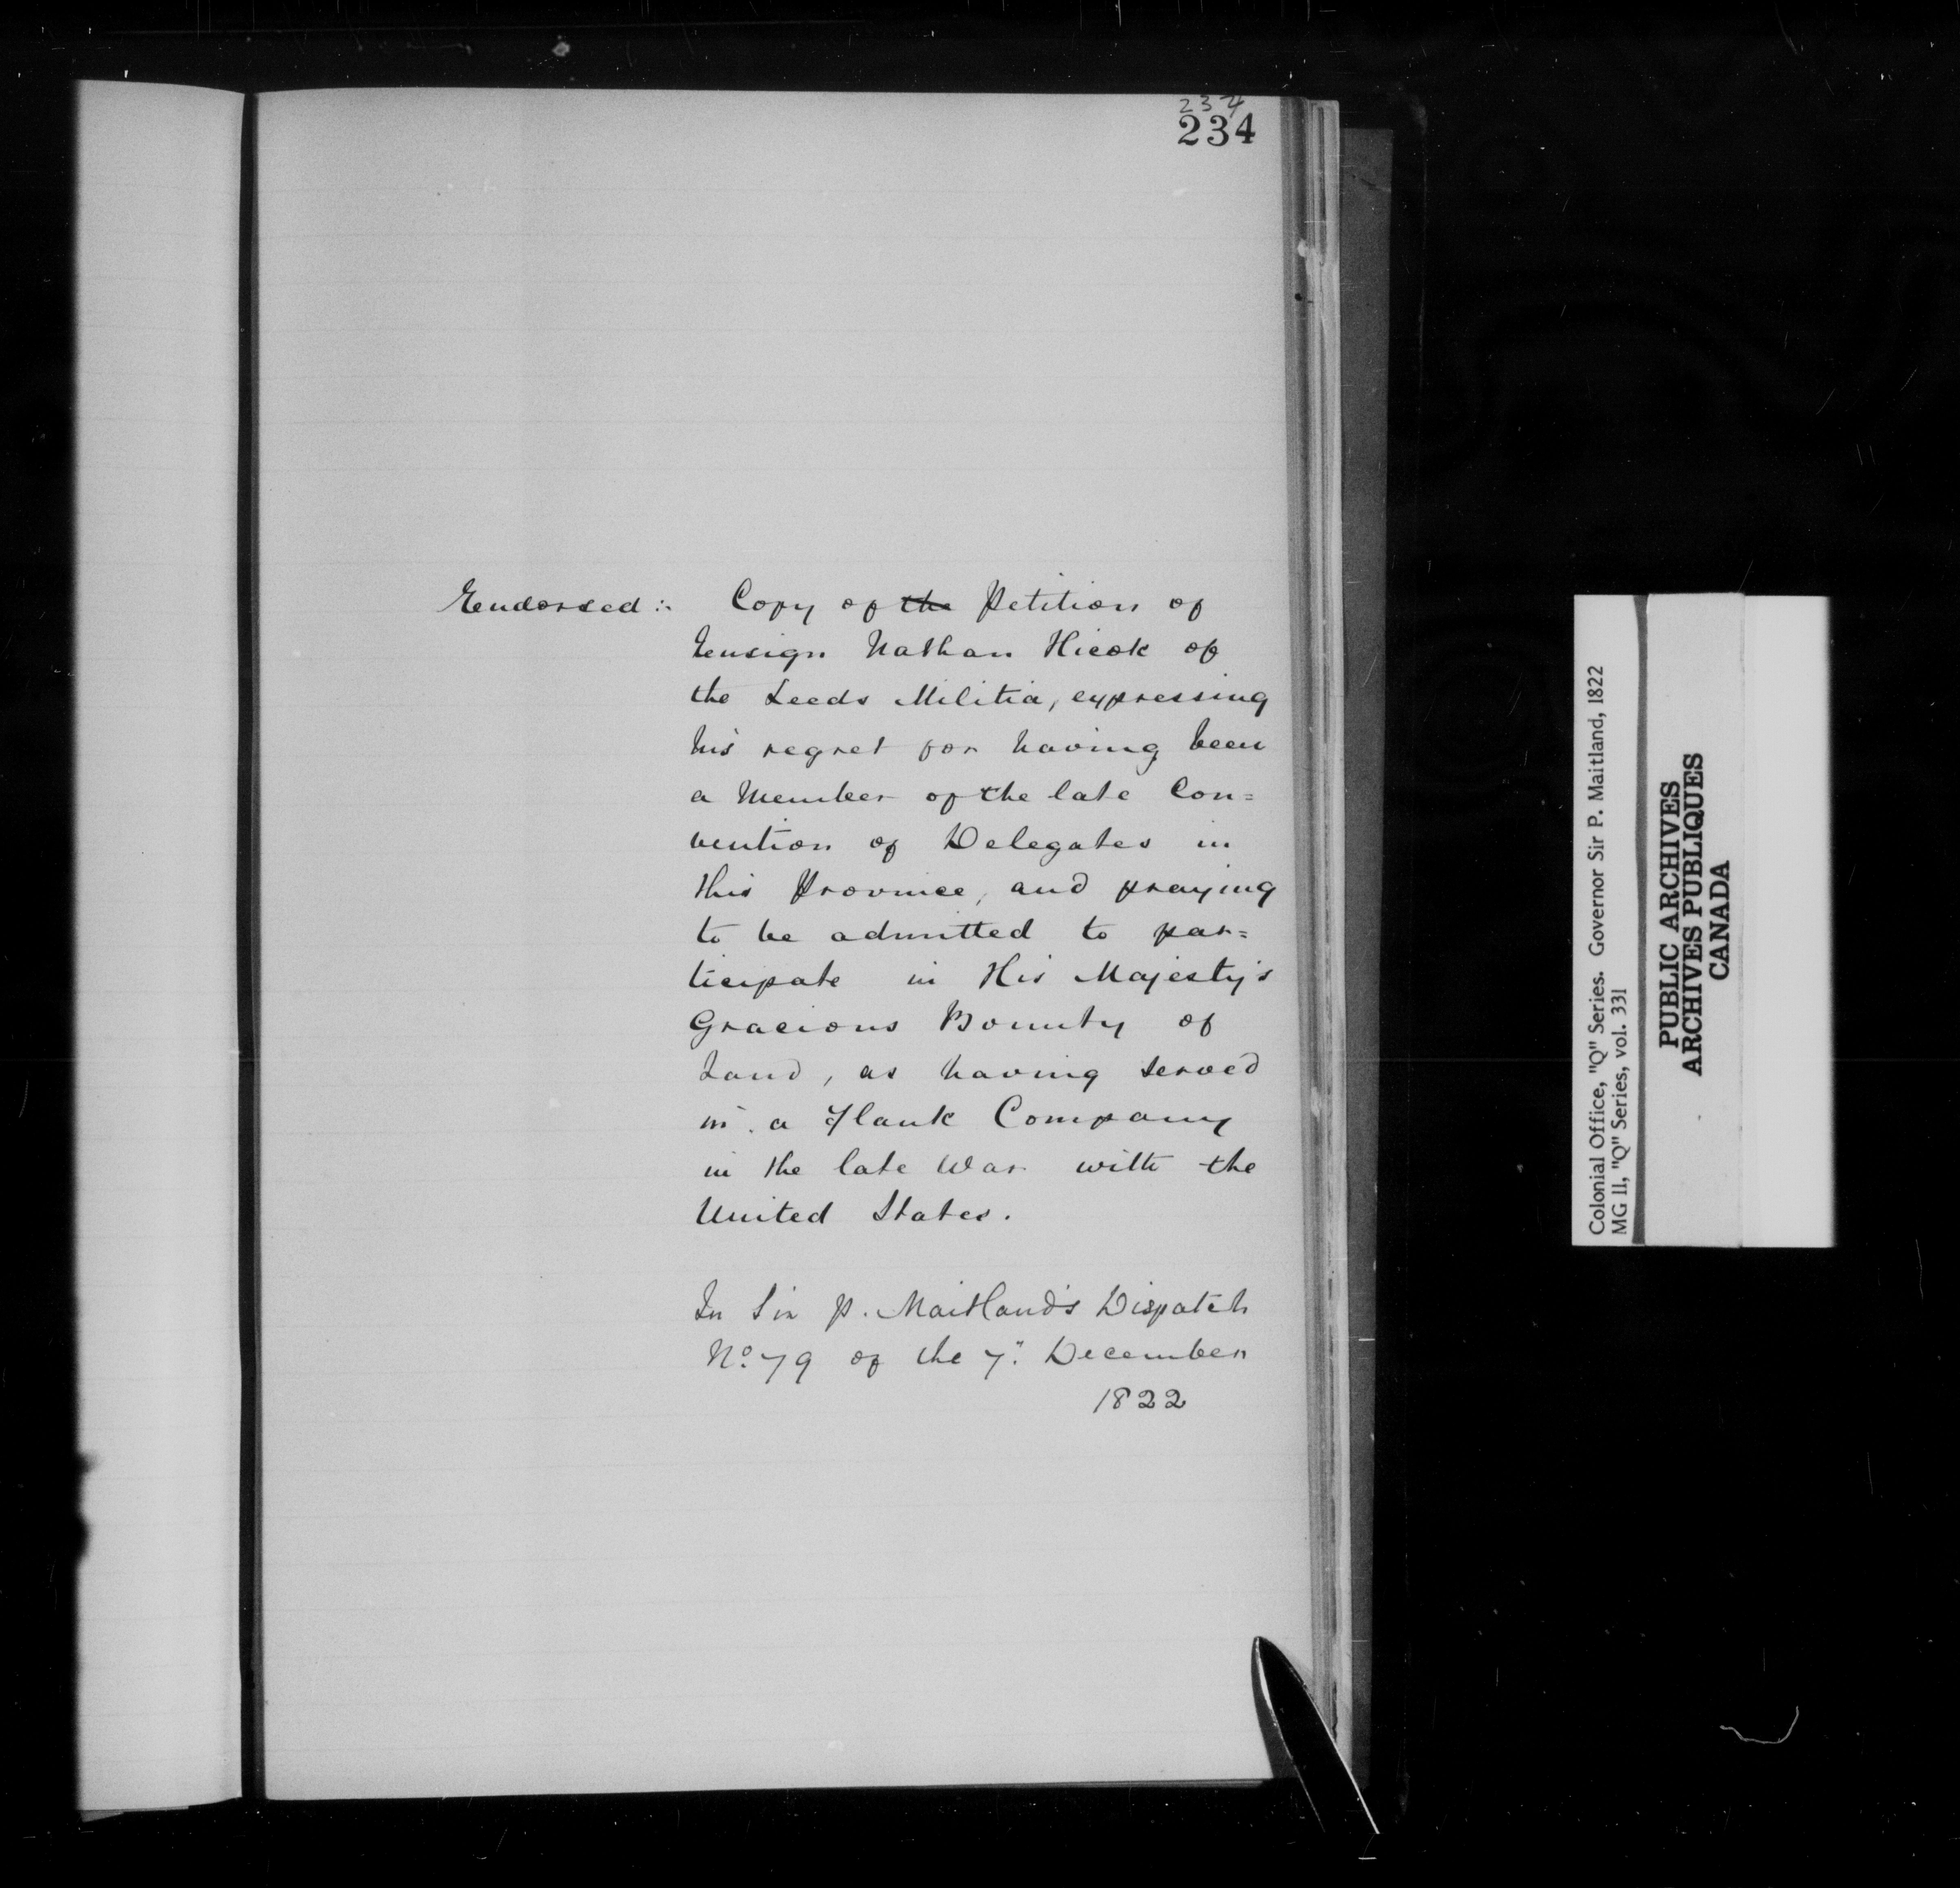 234
234
Endorsed :. Copy of the Petition of
Ensign Nathan Hicok of
the Leeds Militia, expressing
his regret for having been
a Member of the late Con=
vention of Delegates in
this Province, and praying
to be admitted to par=
ticipate in His Majesty's
Gracious Bounty of
Land, as having served
in a Flank Company
in the late War with the
United States.
In Sir P. Maitland's Dispatch
No. 79 of the 7." December
1822
Colonial Office, "Q" Series. Governor Sir P. Maitland, 1822
MG 11, "Q" Series, vol. 331
PUBLIC ARCHIVES
ARCHIVES PUBLIQUES
CANADA